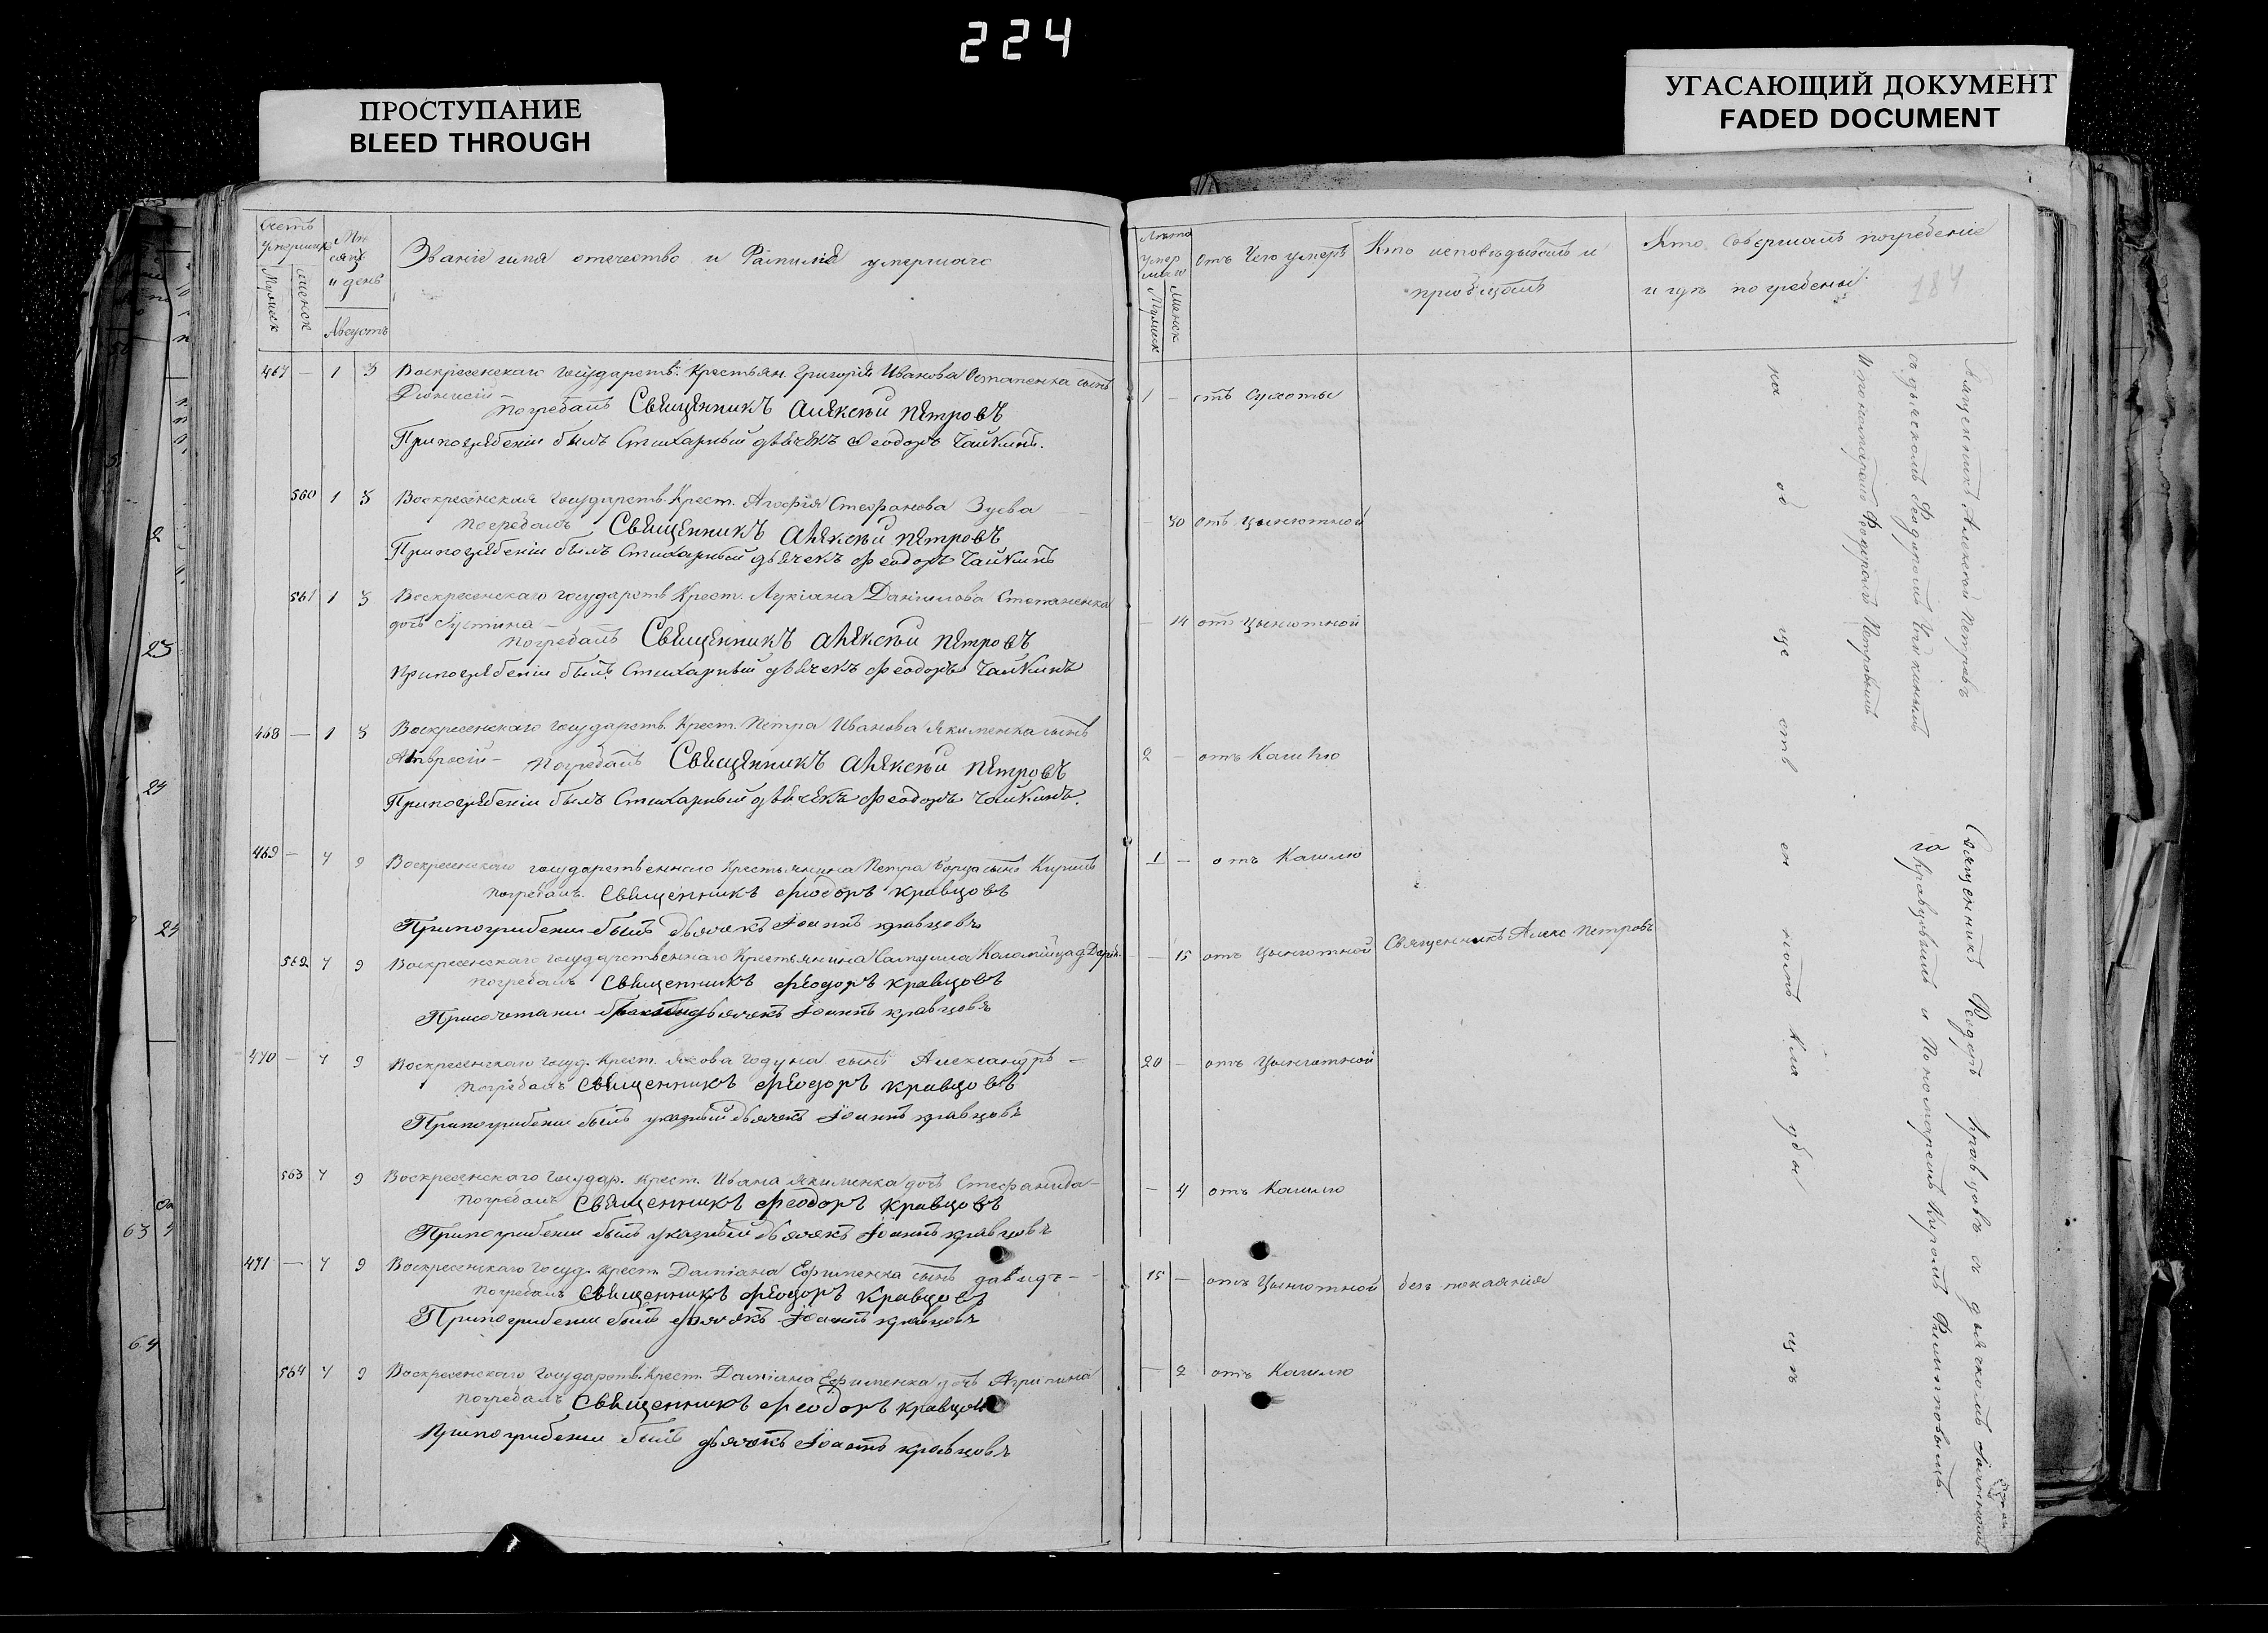 224
ПРОСТУПАНИЕ
BLEED THROUGH
УГАСАЮЩИЙ ДОКУМЕНТ
FADED DOCUMENT
Счетъ умершихъ
Мужеск
Женск
Мѣсяцъ и день
Августъ
Званіе имя отечество и Фамилія умершаго
467 — 1 3 Воскресенскаго государств. Крестьян. Григорія Иванова Остапенка сынъ
Діонисій —
погребалъ Священникъ Алексѣй Петровъ
При погребеніи былъ Стихарный дьячекъ Феодоръ Чайкинъ.
560 1 3 Воскресенская государств. Крест. Агафія Стефанова Зуева —
погребалъ Священникъ Алексѣй Петровъ
При погребеніи былъ Стихарный дьячекъ Феодоръ Чайкинъ
561 1 3 Воскресенскаго государств Крест. Лукіана Данилова Степаненка
дочь Іустина —
погребалъ Священникъ Алексѣй Петровъ
При погребеніи былъ Стихарный дьячекъ Феодоръ Чайкинъ
468 — 1 3 Воскресенскаго государств. Крест. Петра Иванова Якименка сынъ
Амвросій — погребалъ Священникъ Алексѣй Петровъ
При погребеніи былъ Стихарный дьячекъ Феодоръ Чайкинъ.
469 — 7 9 Воскресенскаго государственнаго Крестьянина Петра сынъ Кирилъ
погребалъ. Священникъ Феодоръ Кравцовъ
При погребении былъ дьячекъ Іоаннъ Кравцовъ
562 7 9 Воскресенскаго государственнаго Крестьянина Самуила Коломійца д Дарія.
погребалъ Священникъ Феодоръ Кравцовъ
дьячекъ Іоаннъ Кравцовъ
470 — 7 9 Воскресенскаго госуд. Крест. Якова Годуна сынъ Александръ —
погребалъ Священникъ Феодоръ Кравцовъ
При погребении былъ указный дьячекъ Іоаннъ Кравцовъ
563 7 9 Воскресенскаго государ. Крест. Ивана Якименка дочь Стефанида —
погребалъ Священникъ Феодоръ Кравцовъ
При погребении былъ указный дьячекъ Іоаннъ Кравцовъ
471 — 7 9 Воскресенскаго госуд. Крест. Даміана Ефименка сынъ Давидъ —
погребалъ Священникъ Феодоръ Кравцовъ
При погребении былъ дьячекъ Іоаннъ Кравцовъ
564 7 9 Воскресенскаго государств. Крест. Даміана Ефименка дочь Агрипина
погребалъ Священникъ Феодоръ Кравцов
При погребении былъ дьячекъ Іоаннъ Кравцовъ
Лѣта умершаго
Мужеск
Женск
Отъ Чего умеръ
Кто исповѣдывалъ и пріобщалъ
Кто совершалъ погребеніе и гдѣ погребены
184
1 — отъ Сухоты
— 30 отъ цынготной
— 14 отъ цынготной
2 — отъ Кашлю
1 — отъ Кашлю
— 15 отъ Цынготной Священникъ Алекс Петровъ
20 — отъ Цынготной
— 4 отъ Кашлю
15 — отъ Цынготной без покаянія
— 2 отъ Кашлю
на общественномъ кладбищѣ
Священникъ Алексѣй Петровъ
съ дьячкомъ Феодоромъ Чайкинымъ
и пономаремъ Федоромъ Петровымъ
Священникъ Феодоръ Кравцовъ съ дьячкомъ Іоанномъ
Кравцовымъ и Пономаремъ Кириломъ Филиповымъ.